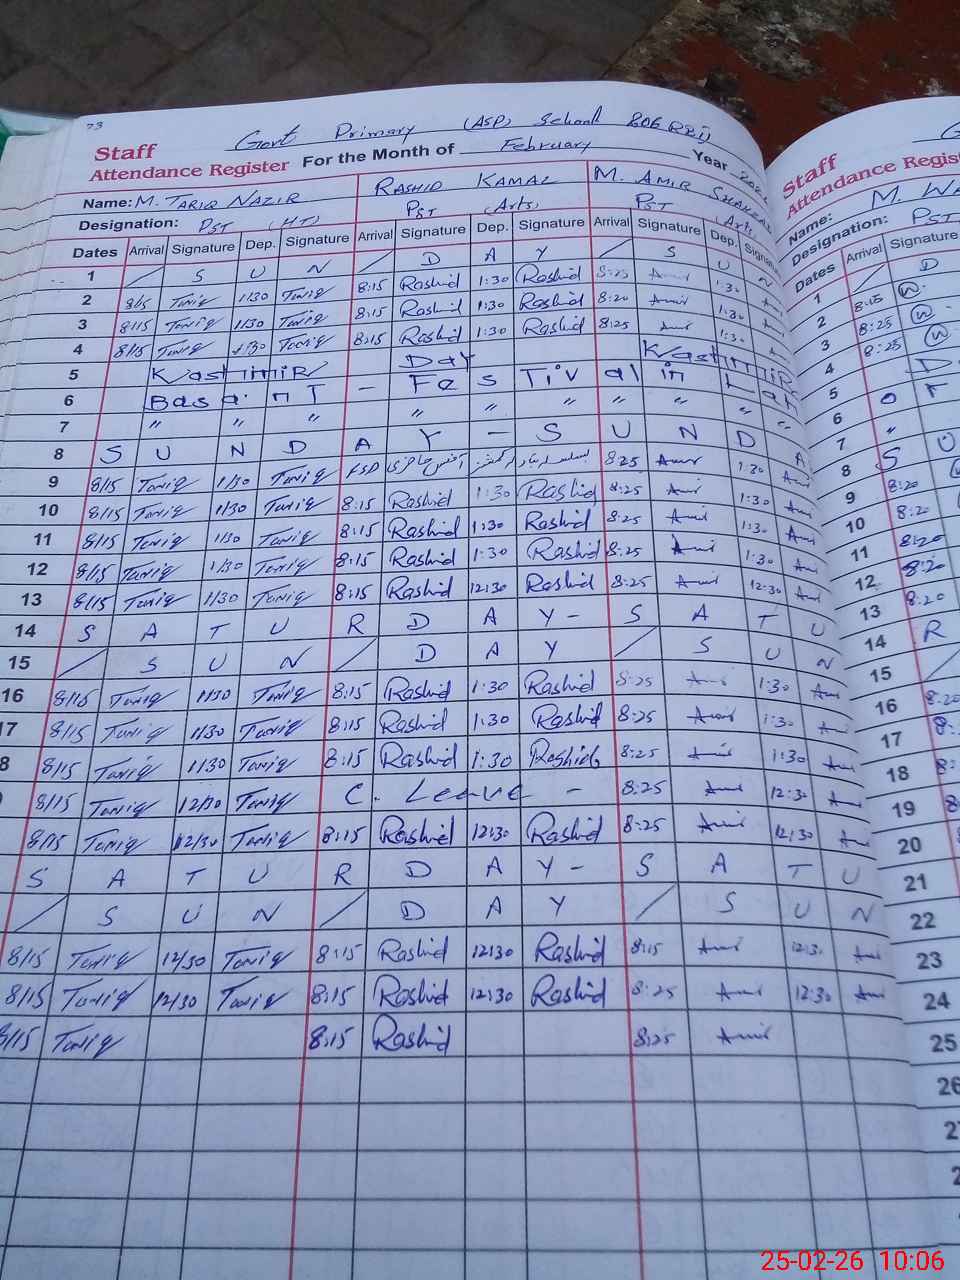 73
Govt Primary (ASP) School 806 RB ij
Staff
Attendance Register For the Month of February Year
Name: M. TARIQ NAZIR RASHID KAMAL M. AMIR
Designation: PST (HT) PST (Arts) PST (Arts
Dates Arrival Signature Dep. Signature Arrival Signature Dep. Signature Arrival Signature Dep. Signature
1 / S U N / D A Y / S U N
2 8/15 Tariq 1/30 Tariq 8:15 Rashid 1:30 Rashid 8:25 Amir 1:30 Amir
3 8/15 Tariq 1/30 Tariq 8:15 Rashid 1:30 Rashid 8:20 Amir 1:30 Amir
4 8/15 Tariq 1/30 Tariq 8:15 Rashid 1:30 Rashid 8:25 Amir 1:30 Amir
5 KashmiR Day KashmiR
6 Basant - Festival in
7 〃 〃 〃 〃 〃 〃 〃 〃 〃
8 S U N D A Y - S U N D A
9 8/15 Tariq 1/30 Tariq FSD 8:25 Amir 1:30 Amir
10 8/15 Tariq 1/30 Tariq 8:15 Rashid 1:30 Rashid 8:25 Amir 1:30 Amir
11 8/15 Tariq 1/30 Tariq 8:15 Rashid 1:30 Rashid 8:25 Amir 1:30 Amir
12 8/15 Tariq 1/30 Tariq 8:15 Rashid 1:30 Rashid 8:25 Amir 1:30 Amir
13 8/15 Tariq 1/30 Tariq 8:15 Rashid 12:30 Rashid 8:25 Amir 12:30 Amir
14 S A T U R D A Y - S A T U
15 / S U N / D A Y / S U N
16 8/15 Tariq 1/30 Tariq 8:15 Rashid 1:30 Rashid 8:25 Amir 1:30 Amir
17 8/15 Tariq 1/30 Tariq 8:15 Rashid 1:30 Rashid 8:25 Amir 1:30 Amir
8 8/15 Tariq 1/30 Tariq 8:15 Rashid 1:30 Rashid 8:25 Amir 1:30 Amir
8/15 Tariq 12/30 Tariq C. Leave - 8:25 Amir 12:30 Amir
8/15 Tariq 12/30 Tariq 8:15 Rashid 12:30 Rashid 8:25 Amir 12:30 Amir
S A T U R D A Y - S A T U
/ S U N / D A Y / S U N
8/15 Tariq 12/30 Tariq 8:15 Rashid 12:30 Rashid 8:15 Amir 12:30 Amir
8/15 Tariq 12/30 Tariq 8:15 Rashid 12:30 Rashid 8:25 Amir 12:30 Amir
8/15 Tariq 8:15 Rashid 8:25 Amir
Staff
Attendance Regis
Name: M. WA
Designation: PST
Dates Arrival Signature
1 / D
2 8:15
3 8:25
4 8:25
5
6
7 〃
8 S U
9 8:20
10 8:20
11 8:20
12 8:20
13 8:20
14 R
15 /
16 8:20
17 8:
18 8:
19 8
20
21
22
23
24
25
26
25-02-26 10:06